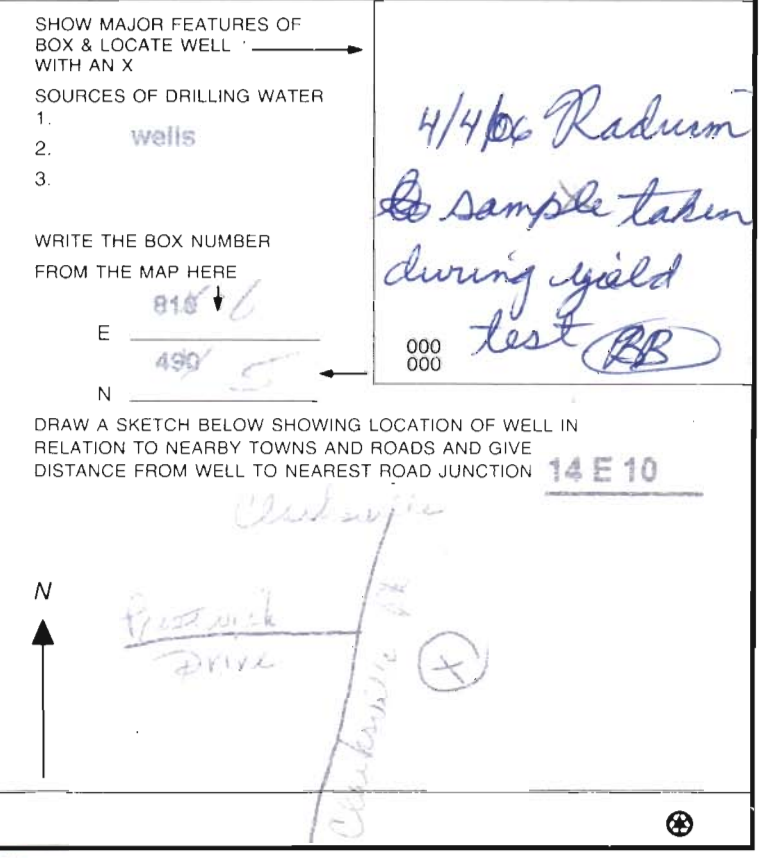 SHOW MAJOR FEATURES OF
BOX & LOCATE WELL
WITH AN X
SOURCES OF DRILLING WATER
1.
wells
2.
3.
WRITE THE BOX NUMBER
FROM THE MAP HERE
E 810 6
N 490 5
4/4/06 Radium
sample taken
during yield
test BB
000
000
DRAW A SKETCH BELOW SHOWING LOCATION OF WELL IN
RELATION TO NEARBY TOWNS AND ROADS AND GIVE
DISTANCE FROM WELL TO NEAREST ROAD JUNCTION 14 E 10
Clarksville
N
Drive
X
Clarksville